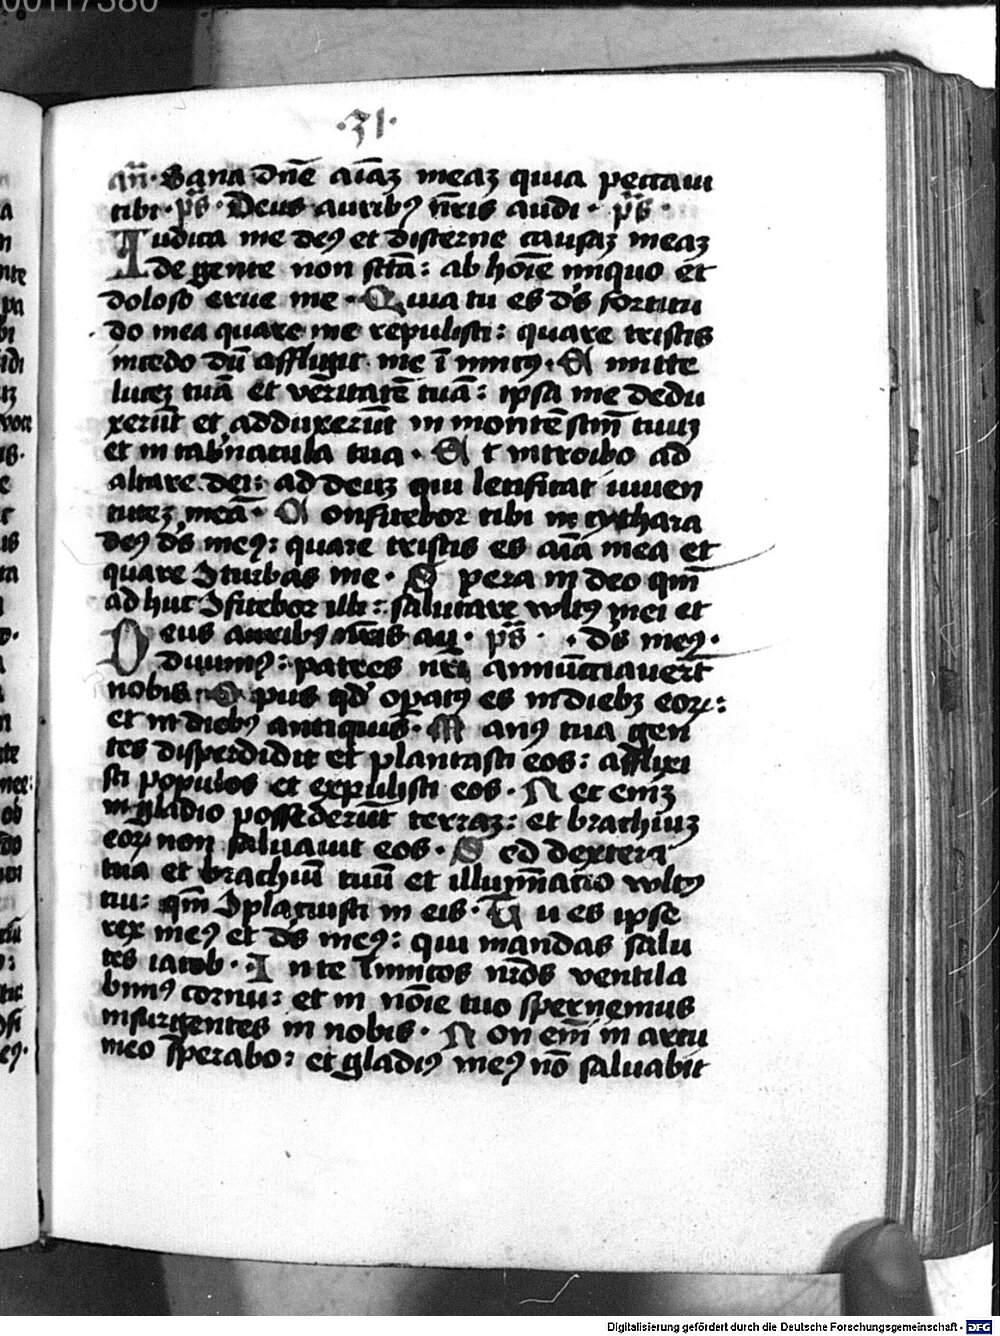 00117380
·31·
añ· Sana dn̄e aīaꝫ meaꝫ quia peccaui
tibi· ps̄· Deus auribꝰ nr̄is audi· ps̄·
Iudica me deꝰ et discerne causaꝫ meaꝫ
de gente non sc̄tā: ab hoīe iniquo et
doloso erue me· Quia tu es ds̄ fortitu
do mea quare me repulisti: quare tristis
incedo dū affligit me ī imicꝰ· Emitte
luceꝫ tuā et veritatē tuā: ipsa me dedu
xerūt et adduxerūt in montē sc̄m̄ tuuꝫ
et in tab'nacula tua· Et introibo ad
altare dei: ad deuꝫ qui letificat iuuen
tuteꝫ meā· Confitebor tibi in cythara
deꝰ ds̄ meꝰ: quare tristis es aīa mea et
quare ꝯturbas me· Spera in deo qm̄
ad huc ꝯfitebor illi: salutare vultꝰ mei et
Deus auribꝰ nr̄is au· ps̄· · ds̄ meꝰ·
diuimꝰ: patres nr̄i annūciauerūt
nobis· Opus qd' opatꝰ es in diebꝫ eoꝝ:
et in diebꝰ antiquis· Manꝰ tua gen
tes disperdidit et plantasti eos: afflixi
sti populos et expulisti eos· Nec eniꝫ
in gladio possederūt terraꝫ: et brachiuꝫ
eoꝝ non saluauit eos· Sed dextera
tua et brachiū tuū et illuminatio vultꝰ
tui: qm̄ ꝯplacuisti in eis· Tu es ipse
rex meꝰ et ds̄ meꝰ: qui mandas salu
tes iacob· In te īimicos nr̄os ventila
bimꝰ cornu: et in noīe tuo spernemus
insurgentes in nobis· Non em̄ in arcu
meo sperabo: et gladiꝰ meꝰ nō saluabit
Digitalisierung gefördert durch die Deutsche Forschungsgemeinschaft - DFG